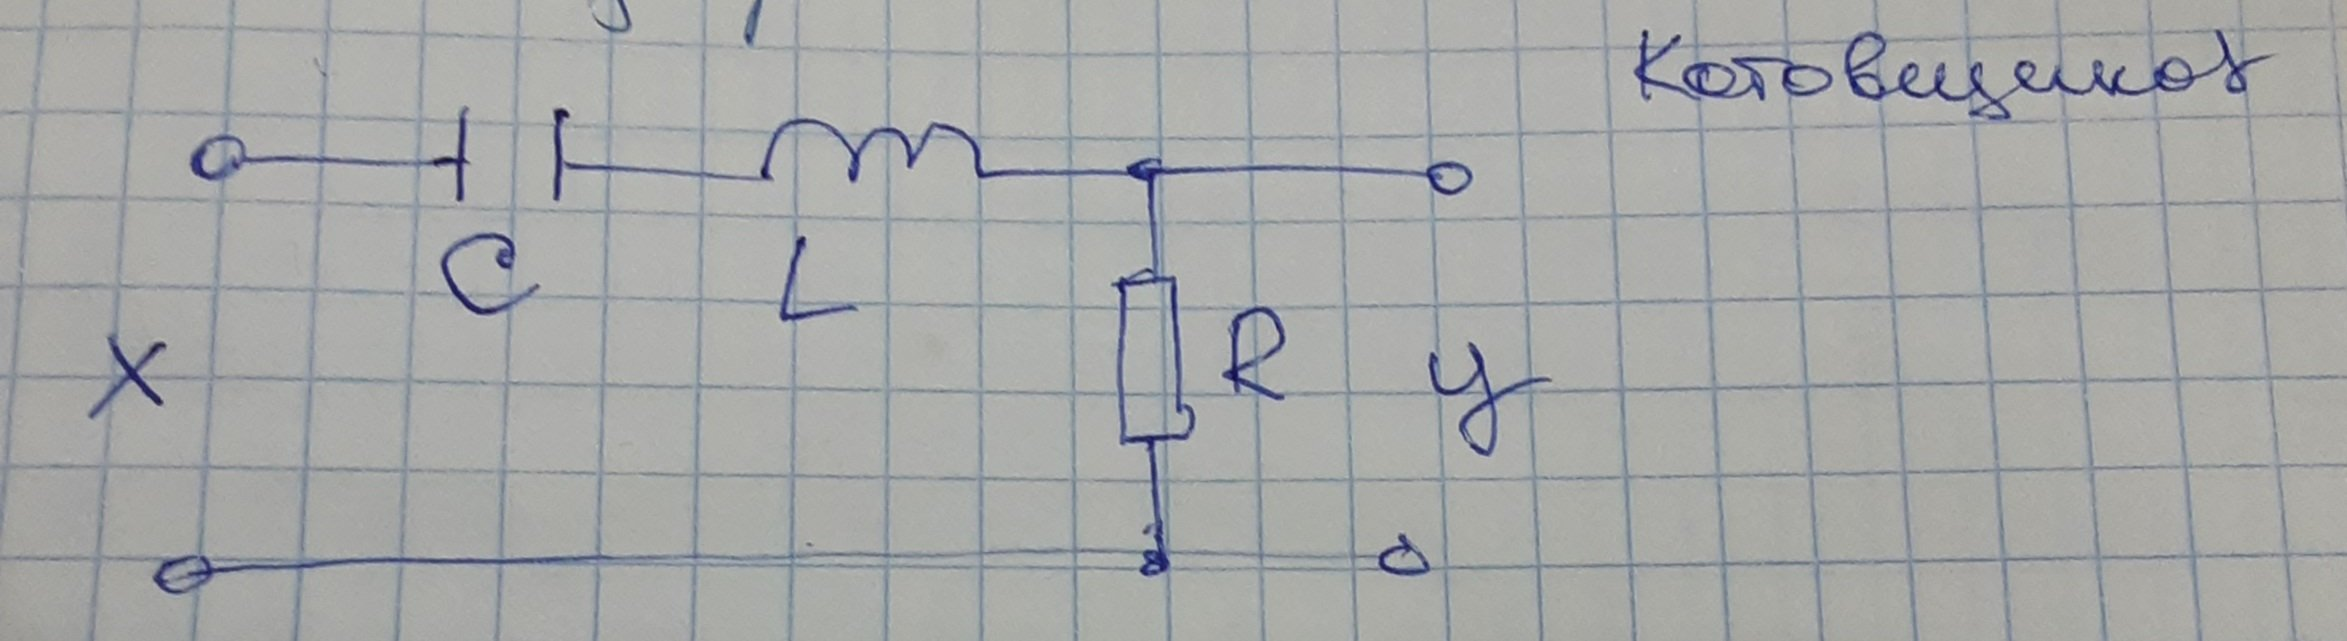 Котовщиков
C L
X R y